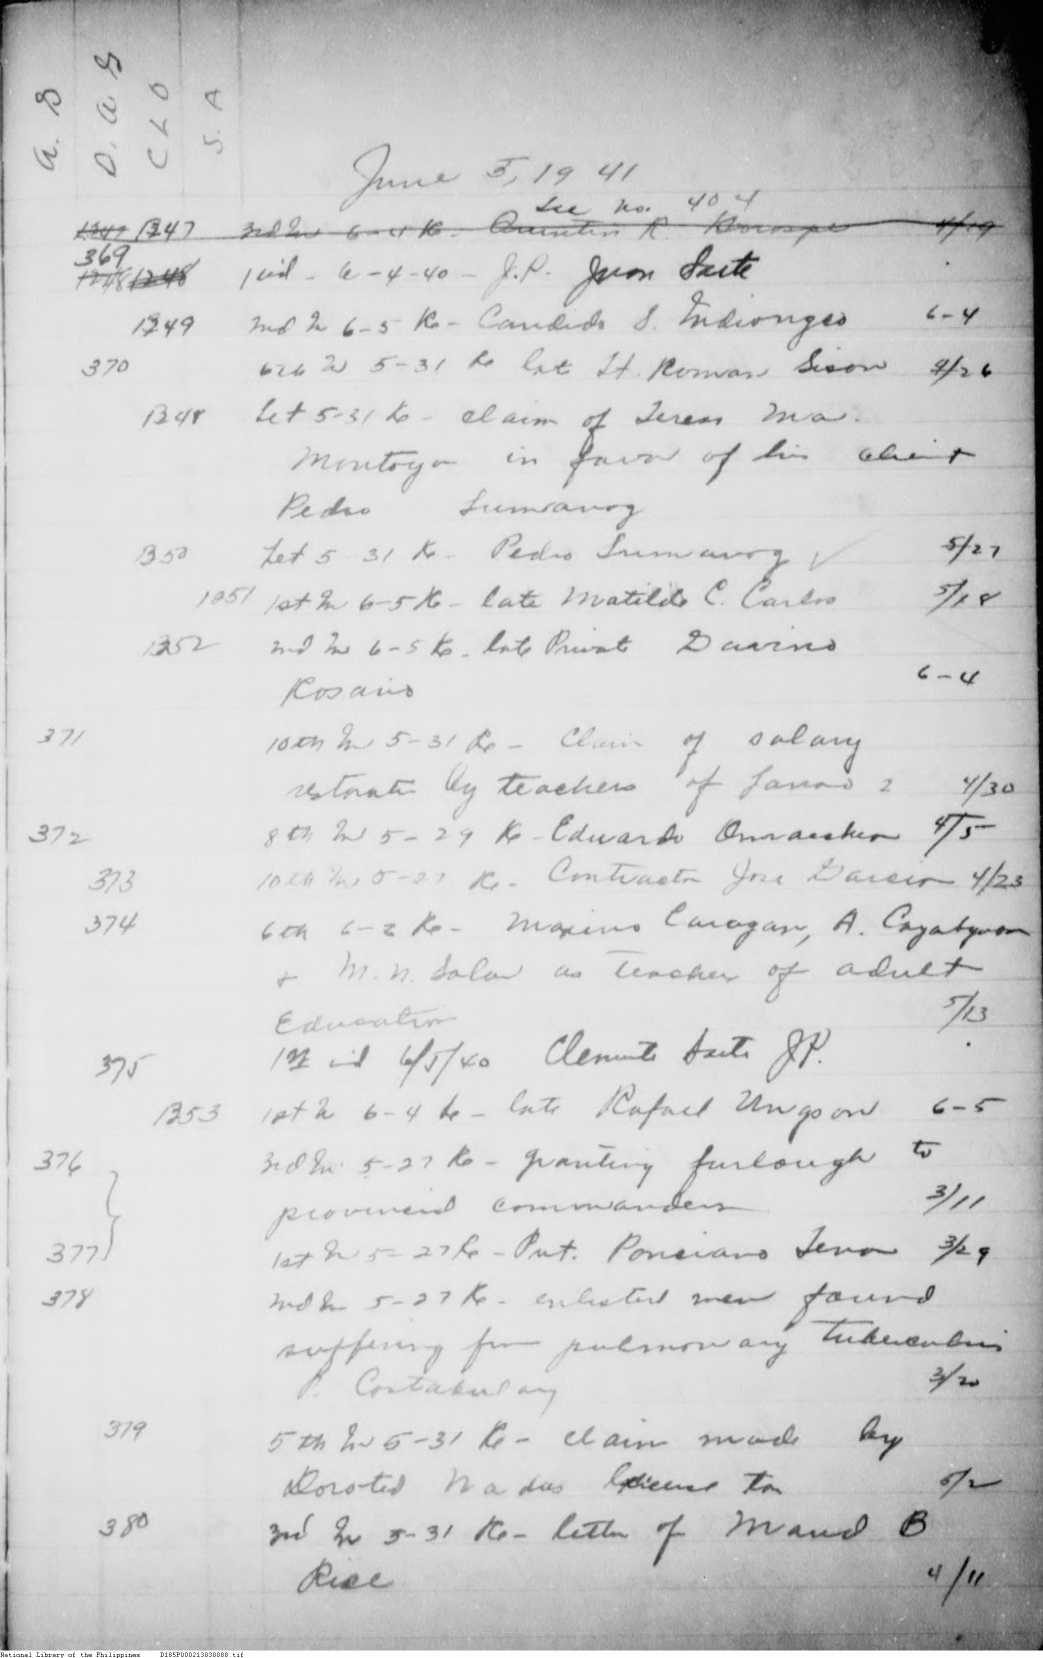 A. G
D. A. G
C L O
S. A
June 5, 1941
See no. 404
1247 1247 3rd In 6-4 Re - Quintin R. 4/19
369
1248 1248 1 ind - 6-4-40 - J.P. Juan Saete
1249 2nd In 6-5 Re - Candido S. Indiongco 6-4
370 6th In 5-31 Re late Lt. Roman Sison 4/26
1248 Let 5-31 Re - claim of Teress Ma.
Montoya in favor of his client
Pedro Sumwavog
1350 Let 5 31 Re - Pedro Sumwavog ✓ 5/27
1251 1st In 6-5 Re - late Matilde C. Carlos 5/18
1252 2nd In 6-5 Re - late Private Gavino
Rosario 6-4
371 10th In 5-31 Re - Claim of salary
by teachers of Lanao 2 4/30
372 8th In 5-29 Re - Eduardo 4/5
373 10th In 5-27 Re - Contractor Jose Garcia 4/23
374 6th 6-2 Re - Maximo Caragan, A. Cayabyvan
+ M. N. Salar as teacher of adult
Education 5/13
375 1st ind 6/5/40 Clemente Saete J.P.
1253 1st In 6-4 Re - late Rafael Ungson 6-5
376 3rd In 5-27 Re - granting furlough to
provincial commanders 3/11
377 1st In 5-27 Re - Pvt. Ponciano Tenor 3/29
378 2nd In 5-27 Re - enlisted men found
suffering from pulmonary tuberculosis
P. Costabulary 3/20
379 5th In 5-31 Re - claim made by
Doroteo license tax 5/2
380 3rd In 5-31 Re - letter of Maud B
Rice 4/11
National Library of the Philippines D185P000213030888.tif